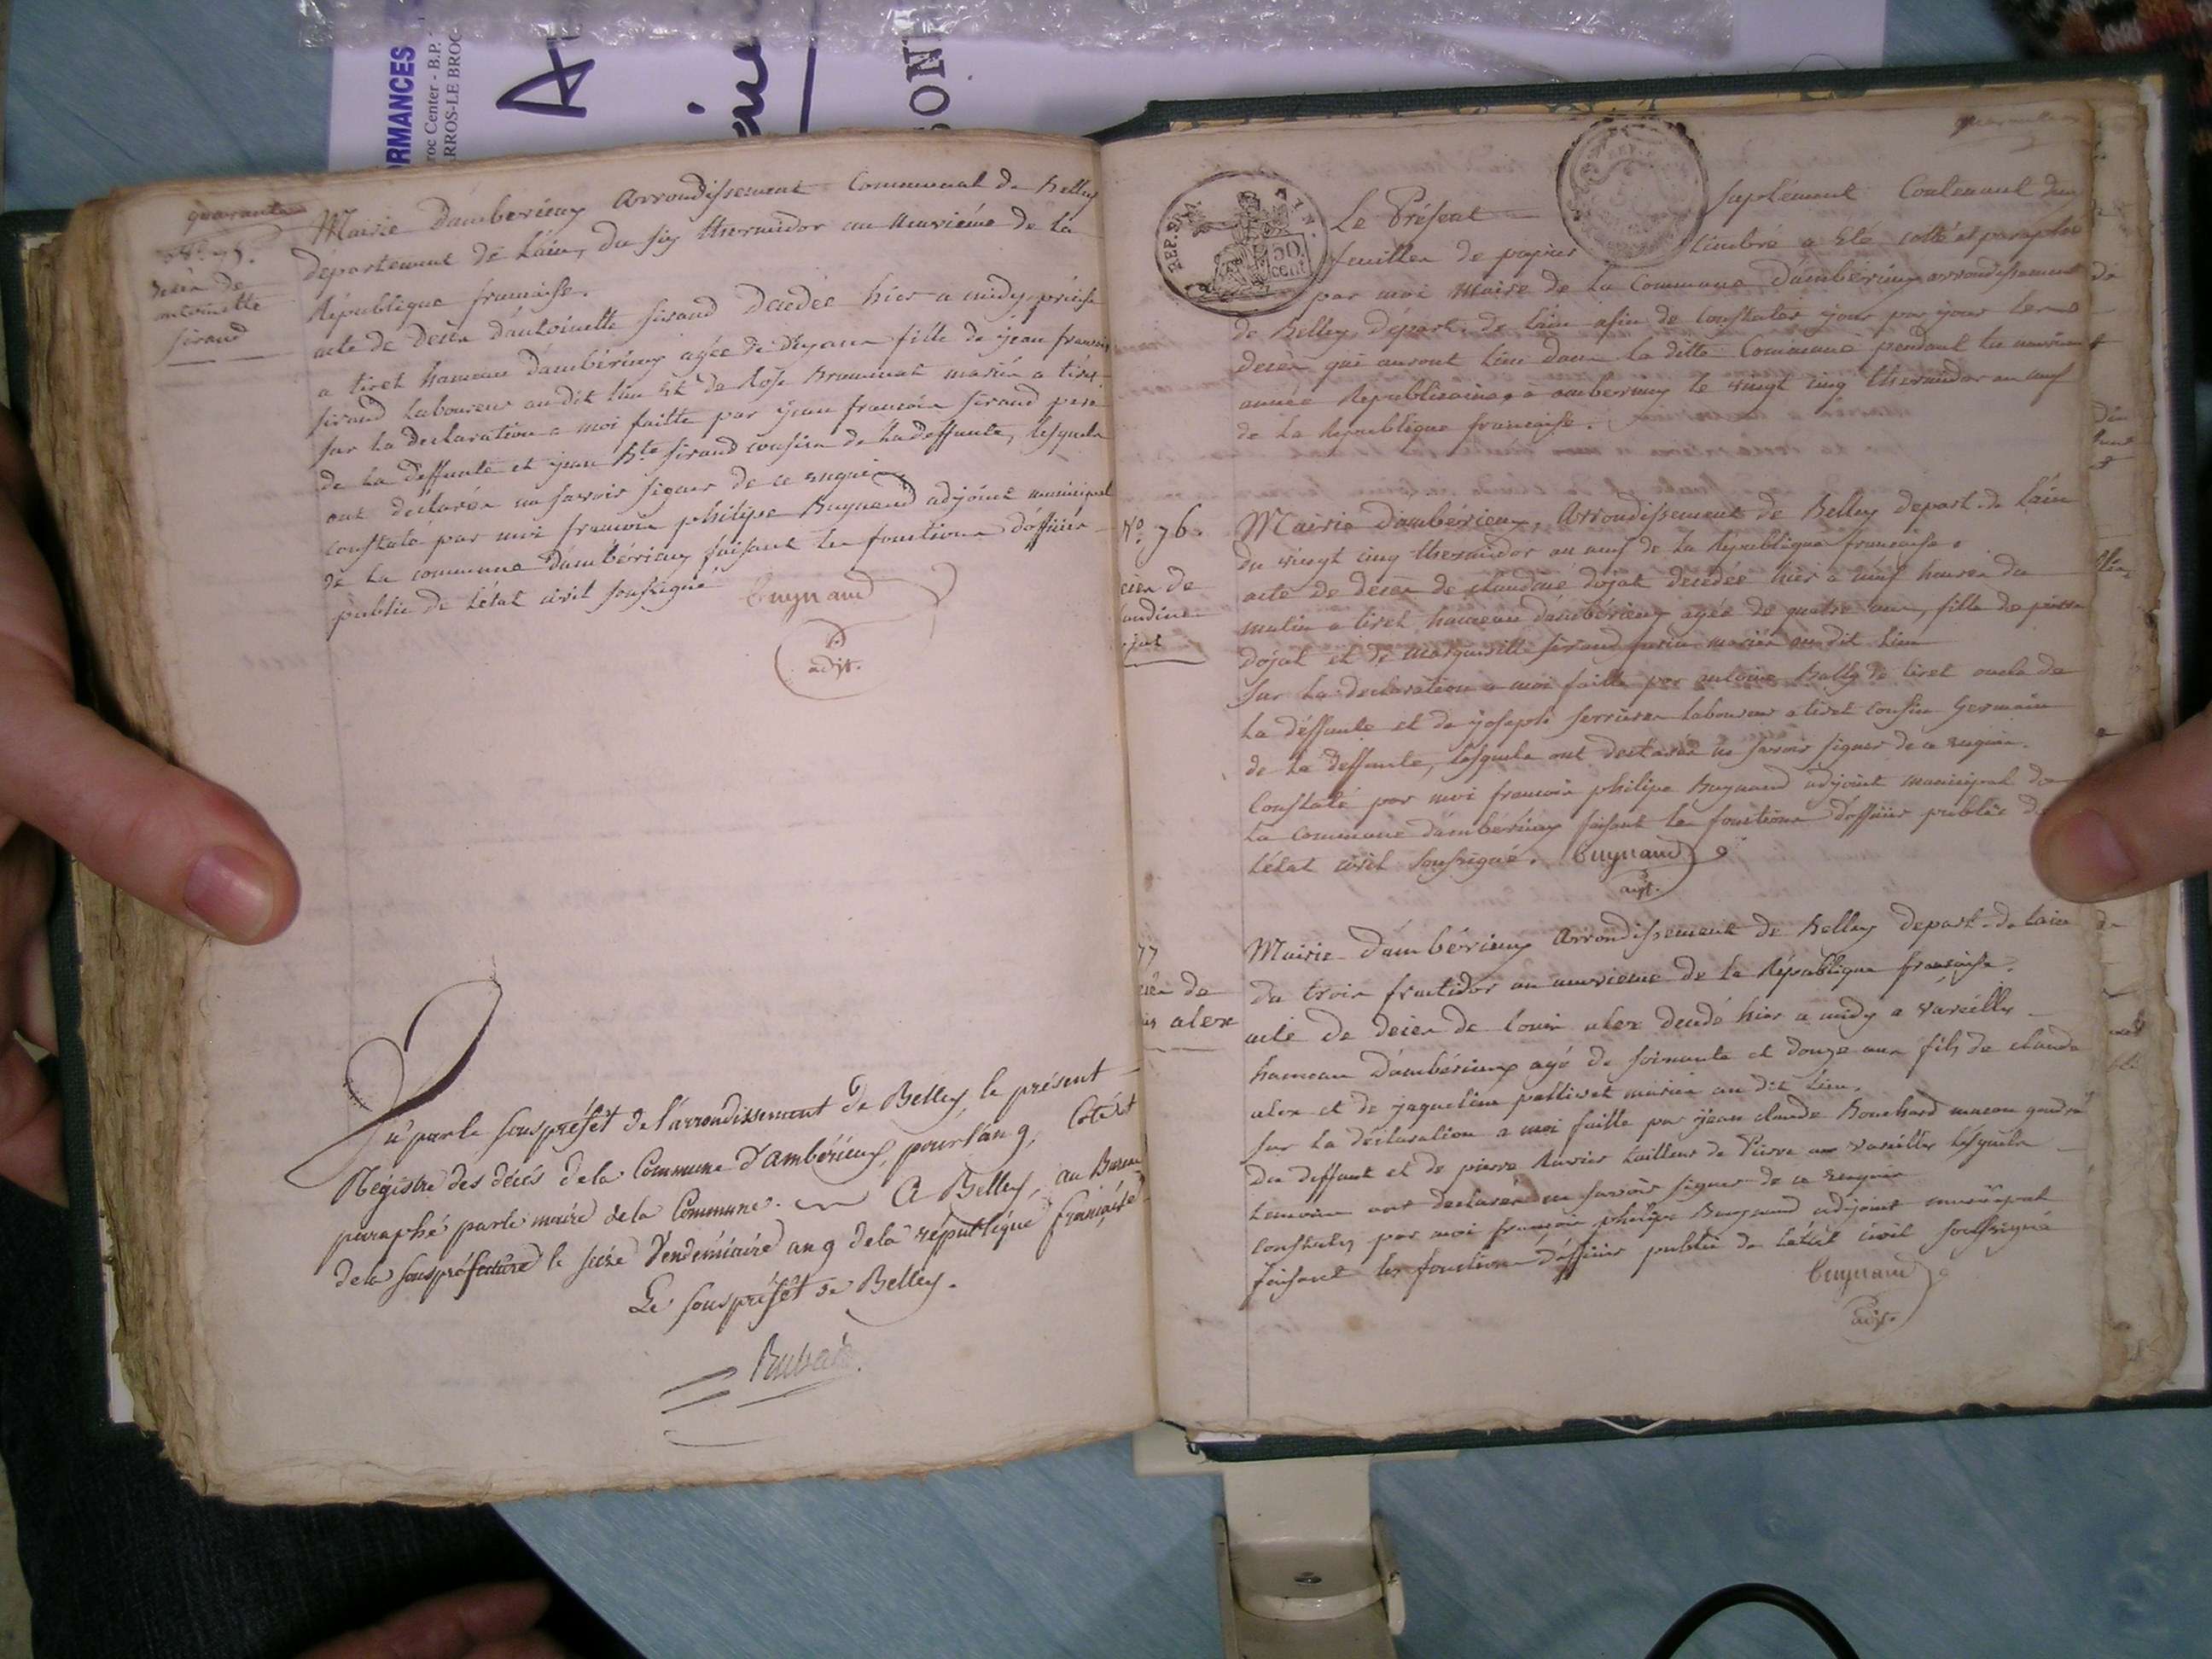 RMANCES
roc Center - B.P.
RROS-LE BROC
SON
quarante
N° 75.
Décès de
antoinette
sirand
Mairie d'ambérieux arrondissement Communal de Belley
département de l'ain, du six thermidor an neuvième de la
République française.
acte de Décès d'antoinette sirand décédée hier a midy précise
a tiret hameau d'ambérieux agée de dix ans fille de jean françois
sirand laboureur au dit lieu et de Rose Brunnat mariés a tiret
sur la déclaration a moi faitte par jean françois sirand père
de la deffunte et jean Bte sirand cousin de la deffunte, lesquels
ont déclarés ne savoir signer de ce enquis
Constaté par moi françois philipe Buynand adjoint municipal
de la commune d'ambérieux faisant les fonctions d'officier
public de l'état civil soussigné
Buynand
adjt.
Vu par le sous préfet de l'arrondissement de Belley, le présent
Régistre des décès de la Commune d'ambérieux, pour l'an 9, Coté et
paraphé par le maire de la Commune. A Belley, au Bureau
de la souspréfecture le seize Vendémiaire an 9 de la république française
Le sous préfet de Belley.
REP. FRA.
50
cent
Le Présent suplément Contenant deux
feuilles de papier timbré a été cotté et paraphé
par moi Maire de la Commune d'ambérieux arrondissement
de Belley, départ. de l'ain afin de constater jour par jour les
décès qui auront lieu dans la ditte Commune pendant la neuvième
année Républicaine, à ambérieux le vingt cinq thermidor an neuf
de la République française.
N° 76.
écès de
audine
ojat
Mairie d'ambérieux, arrondissement de Belley depart. de l'ain
du vingt cinq thermidor an neuf de la République française.
acte de décès de claudine dojat décédée hier a neuf heures du
matin a tiret hameau d'ambérieux agée de quatre ans, fille de pierre
dojat et de margueritte sirand mariés au dit lieu
sur la déclaration a moi faitte par antoine Bally de tiret oncle de
la déffunte et de joseph ferrier laboureur a tiret cousin Germain
de la deffunte, lesquels ont déclarés ne savoir signer de ce enquis.
Constaté par moi françois philipe Buynand adjoint municipal de
la Commune d'ambérieux faisant les fonctions d'officier public de
l'état civil soussigné. Buynand
adjt.
77
écès de
is alex
Mairie d'ambérieux arrondissement de Belley depart. de l'ain
du trois fructidor an neuvième de la République française.
acte de décès de louis alex décédé hier a midy a vareilles
hameau d'ambérieux agé de soixante et douze ans fils de claude
alex et de jaqueline pallivet mariés au dit lieu.
sur la déclaration a moi faitte par jean claude Bouchard maçon gendre
du deffunt et de pierre Ravier tailleur de Pierre a vareilles lesquels
temoins ont déclarés ne savoir signer de ce enquis
constaté par moi françois philipe Buynand adjoint municipal
faisant les fonctions d'officier public de l'état civil soussigné
Buynand
adjt.